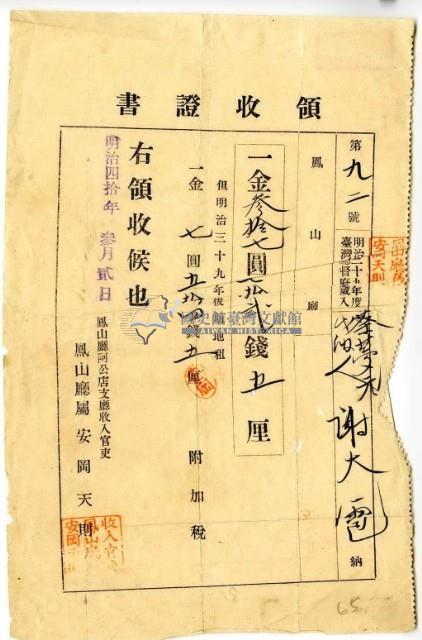 領收證書
第九二號
明治三十九年度
臺灣總督府歲入
謝大
納
鳳山廳
一金參拾七圓
貳錢五厘
但明治三十九年後
地租
一金 七圓五
錢五厘 附加稅
右領收候也
明治四拾年 參月貳日
鳳山廳阿公店支廳收入官吏
鳳山廳屬 安岡天則
鳳山廳屬
安岡天則
收入官
鳳山廳
安岡
國史館臺灣文獻館
TAIWAN HISTORICA
65